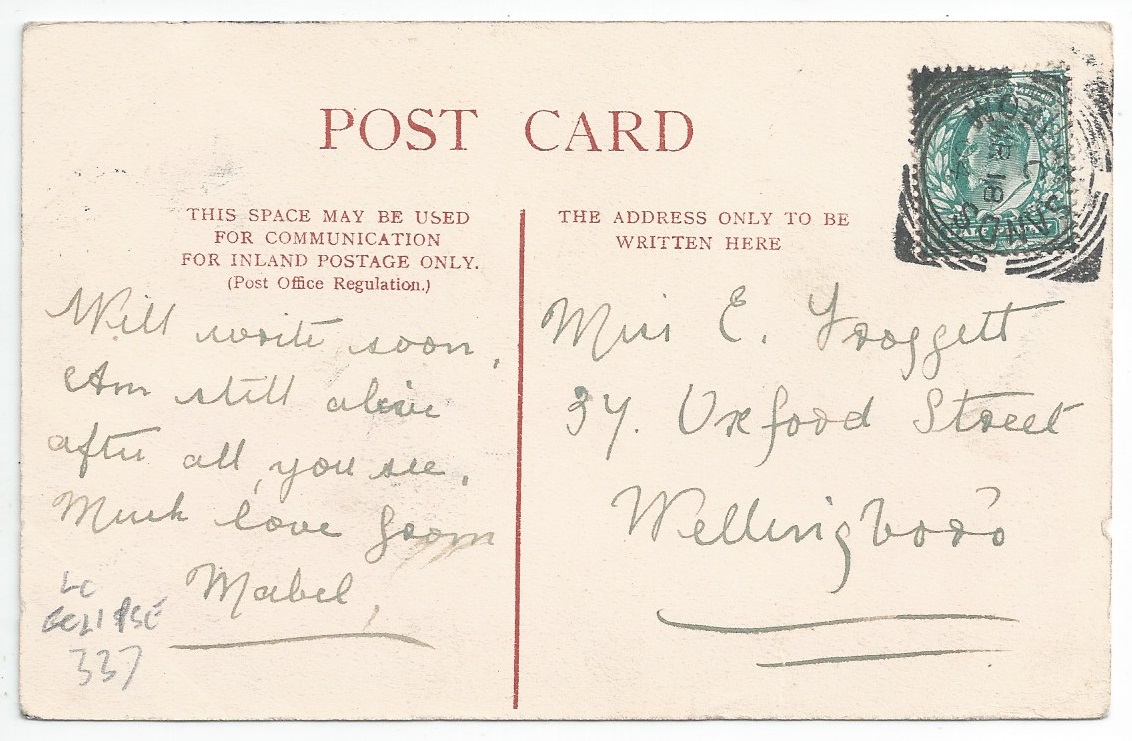 POST CARD
THIS SPACE MAY BE USED
FOR COMMUNICATION
FOR INLAND POSTAGE ONLY.
(Post Office Regulation.)
THE ADDRESS ONLY TO BE
WRITTEN HERE
Will write soon,
Am still alive
after all, you see,
Much love from
Mabel,
LC
ECLIPSE
337
Miss E. Froggett
37. Oxford Street
Wellingboro'